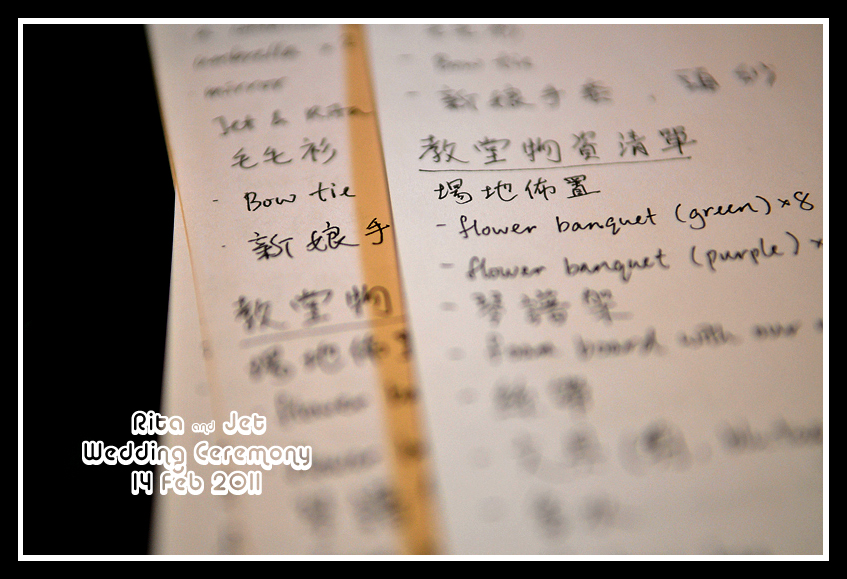 umbrella × 2
mirror
Jet & Rita
毛毛衫
- Bow tie
- 新娘手
教堂物
場地佈
flower
- Bow tie
- 新娘手套，頭紗
教堂物資清單
場地佈置
- flower banquet (green) ×8
- flower banquet (purple) ×
- 琴譜架
- foam board with our
Rita and Jet
Wedding Ceremony
14 Feb 2011